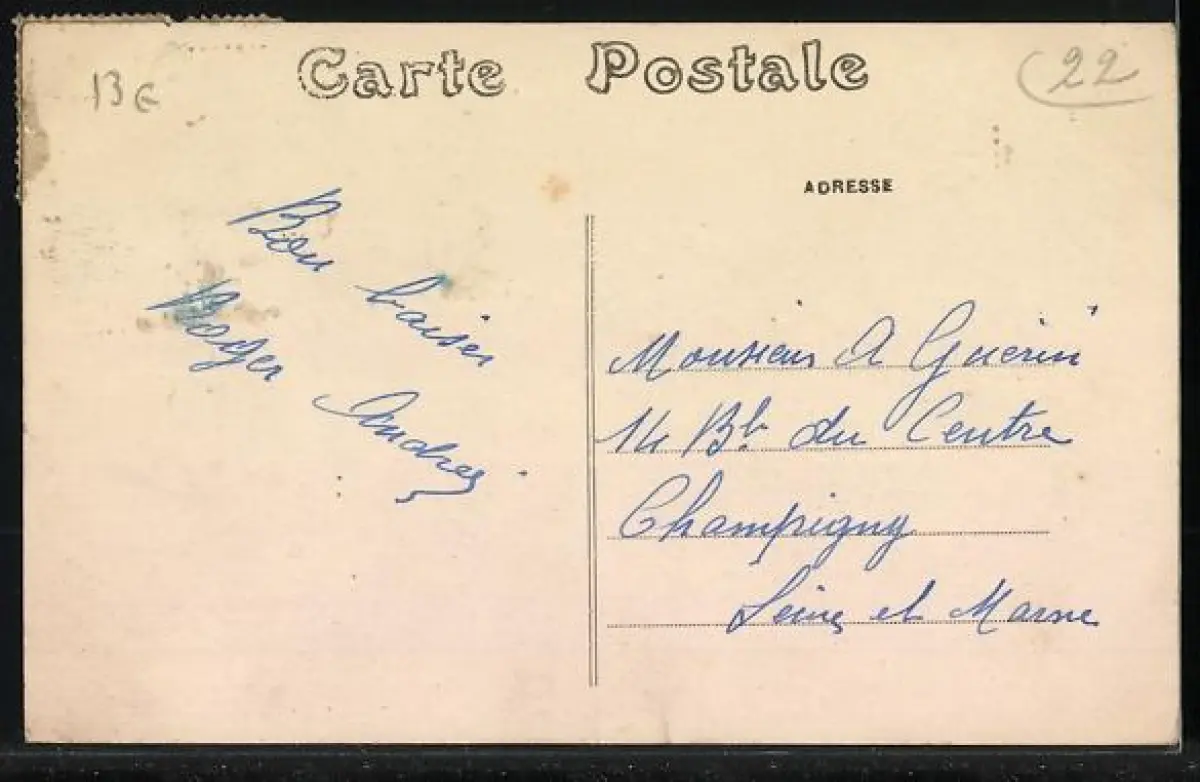 13€
Carte Postale
22
ADRESSE
Bon baiser
Roger Andrée
Monsieur A Guérin
14 Bd du Centre
Champigny
Seine et Marne